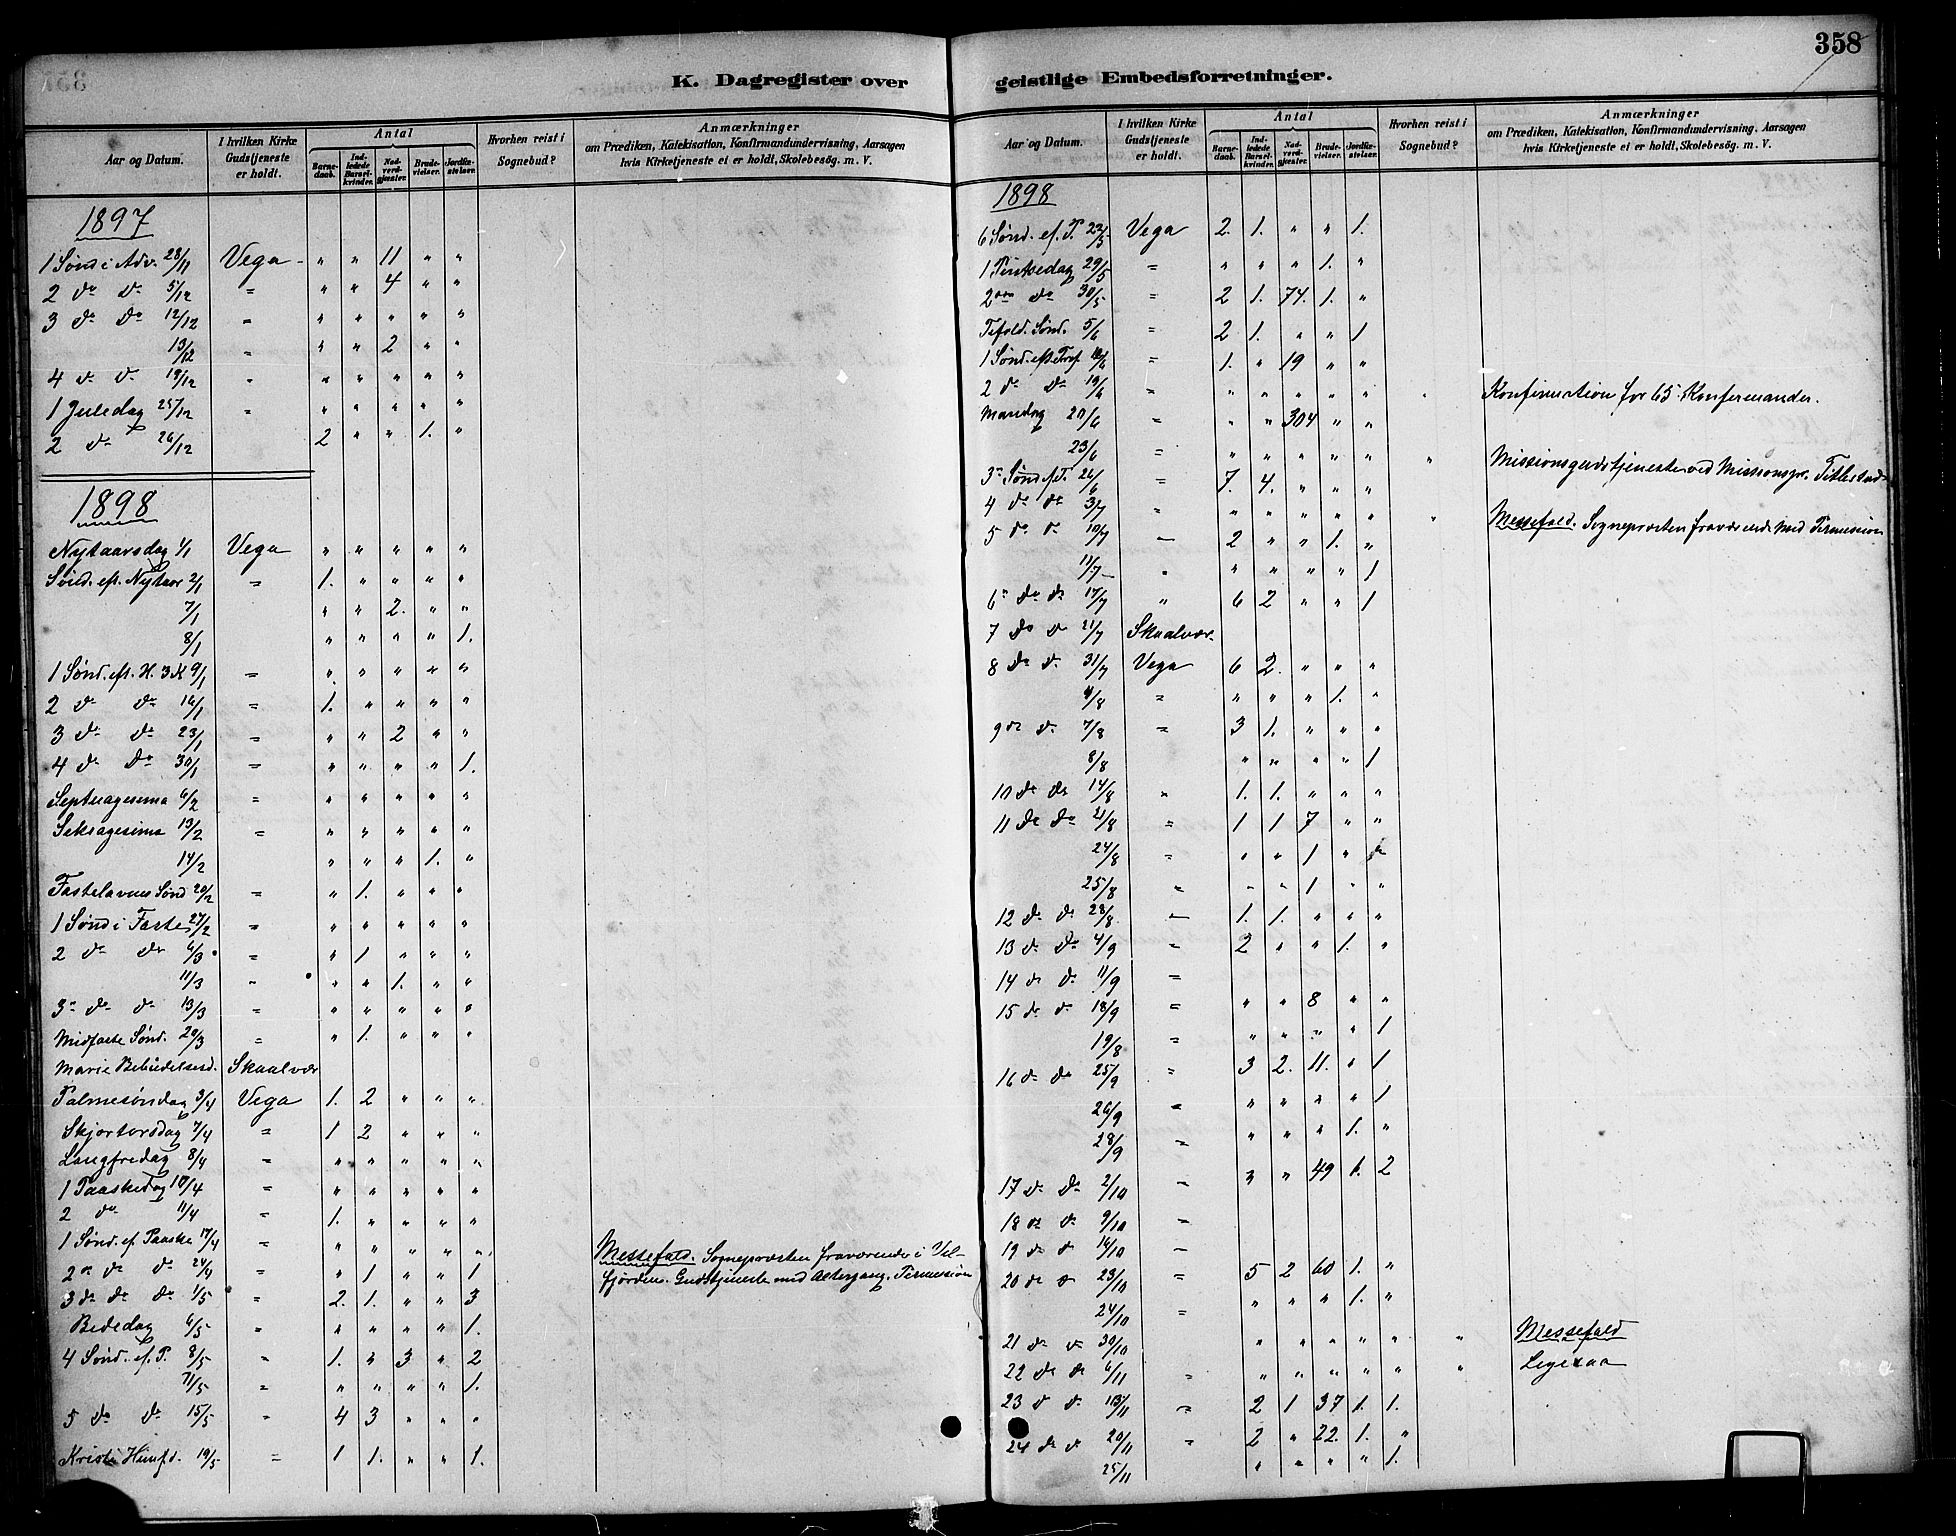 358
K. Dagregister over geistlige Embedsforretninger.
Aar og Datum. I hvilken Kirke Gudstjeneste er holdt. Antal Barnedaab. Indledede Barselkvinder. Nadverdgjæster. Brudevielser. Jordfæstelser. Hvorhen reist i Sognebud? Anmærkninger om Prædiken, Katekisation, Konfirmandundervisning, Aarsagen hvis Kirketjeneste ei er holdt, Skolebesög. m. V.
1897
1 Sønd i Adv. 28/11 Vega " " 11 " "
2 do do 5/12 = " " 4 " "
3 do do 12/12 = " " " " "
13/12 = " " 2 " "
4 d. d. 19/12 " " " " " "
1 Juledag 25/12 = " " " " "
2 do 26/12 2 " " 1. "
1898
Nytaarsdag 1/1 Vega " " " " "
Sønd. ef. Nytaar 2/1 = 1. " " " "
7/1 " " 2. " "
8/1 " " " " 1.
1 Sønd. eft. H. 3 K 9/1 = " " " " "
2 do do 16/1 = 1. " " " "
3 do do 23/1 = " " 2 " "
4 do do 30/1 = " " " " 1.
Septuagesima 6/2 = " " " " "
Seksagesima 13/2 = " " " " "
14/2 " " " 1. "
Fastelavens Sønd 20/2 = " 1. " " "
1 Sønd i Faste 27/2 = " " " " "
2 do do 6/3 = " 1 " " "
11/3 " " " 1. " "
3 do do 13/3 = " " " " "
Midfaste Sønd. 20/3 = " 1. " " "
Marie Bebudelsesd. Skaalvær
Palmesøndag 3/4 Vega 1. 2 " " "
Skjertorsdag 7/4 = 1 2 " " "
Langfredag 8/4 = " " " " "
1 Paaskedag 10/4 = " " " " "
2 do 11/4 = 1. " " " "
1 Sønd. ef. Paaske 17/4 = " " " " " Messefald. Sognepræsten fraværende i Vel-
2 do do 24/4 = " 1 " " 1 fjorden. Gudstjeneste med Altergang. Permission
3 do do 1/5 = 2. 1. " " 3
Bededag 6/5 " " " " " 1.
4 Sønd. ef. P. 8/5 " 1. " 3 " 2
11/5 = " " " " 1.
5 do do 15/5 " 4 3 " " "
Kristi Himfd. 19/5 = 1 1. " " 1.
Aar og Datum. I hvilken Kirke Gudstjeneste er holdt. Antal Barnedaab. Indledede Barselkvinder. Nadverdgjæster. Brudevielser. Jordfæstelser. Hvorhen reist i Sognebud? Anmærkninger om Prædiken, Katekisation, Konfirmandundervisning, Aarsagen hvis Kirketjeneste ei er holdt, Skolebesög. m. V.
1898
6 Sønd. ef. P. 22/5 Vega 2. 1. " " 1.
1 Pintsedag 29/5 = " " " 1. "
2den do 30/5 = 2 1. 74. 1. "
Trefold. Sønd. 5/6 = 2 1. " " 1
1 Sønd. eft. Tref. 12/6 = 1. " 19 " "
2 do do 19/6 = " " " " " " Konfirmation for 65 Konfirmander.
Mandag 20/6 = " " 304 " "
23/6 = " " " " " " Missionsgudstjeneste ved Missionspr. Titlestad
3 Sønd. ef. T. 26/6 = 7. 4. " " "
4 do do 3/7 " " " " " " " Messefald. Sognepræsten fraværende med Permission
5 do d. 10/7 " 2 " " 1. "
11/7 " " " " " 1
6 do do 17/7 " 6 2 " " 1
7 do d. 21/7 Skaalvær
8 do d. 31/7 Vega 6 2. " " "
4/8 = " " " 1. "
9 do d. 7/8 = 3 1. " " "
8/8 " " " " 1
10 do do 14/8 " 1. 1. " " "
11 do do 21/8 " 1 1 7 " "
24/8 = " " 1 " "
25/8 " " " 1 " "
12 do do 28/8 " 1. 1. " " "
13 do do 4/9 = 2 " " 1. "
14 do do 11/9 =
15 do do 18/9 = " " 8 " "
19/8 = " " " " 1
16 do do 25/9 = 3 2. 11. " 1
26/9 = " " " " 1
28/9 = " " " 1. "
17 do do 2/10 " 3 " 49 1. 2
18 do do 9/10 =
19 do d 16/10 "
20 do d 23/10 = 5 2 60 1. "
24/10 = " " " 1. "
21 do d 30/10 " " " " " " Messefald
22 do do 6/11 " " " " " " " Ligesaa
23 d d. 13/11 = 2 1 37 1. 1.
24 do d 20/11 " 2 " 22. 1. "
25/11 " " " " 1.